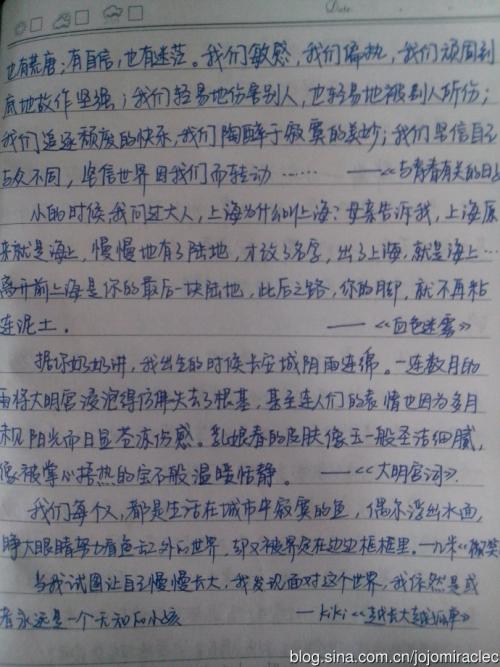 Date
也有荒唐；有自信，也有迷茫。我们敏感，我们偏执，我们顽固到
底地故作坚强；我们轻易地伤害别人，也轻易地被别人所伤；
我们追逐颓废的快乐，我们陶醉于寂寞的美妙；我们坚信自己
与众不同，坚信世界因我们而转动……——《与青春有关的日
小的时候，我问过大人，上海为什么叫上海？母亲告诉我，上海原
来就是海上，慢慢地有了陆地，才改了名字，出了上海，就是海上…
离开前上海是你的最后一块陆地，此后之路，你的脚，就不再粘
连泥土。——《血色迷雾》
据你奶奶讲，我出生的时候长安城阴雨连绵。一连数月的
雨将大明宫浸泡得仿佛失去了根基，甚至连人们的表情也因为多月
未见阳光而日显苍凉伤感。乳娘春的皮肤像玉一般圣洁细腻，
像被掌心捂热的宝石般温暖恬静。——《大明宫词》
我们每个人，都是生活在城市中寂寞的鱼，偶尔浮出水面，
睁大眼睛努力看鱼缸之外的世界，却又被界定在边边框框里。—九米《微笑
当我试图让自己慢慢长大，我发现面对这个世界，我依然是或
者永远是一个无知的小孩 —kiki《越长大越孤单》
blog.sina.com.cn/jojomiraclec